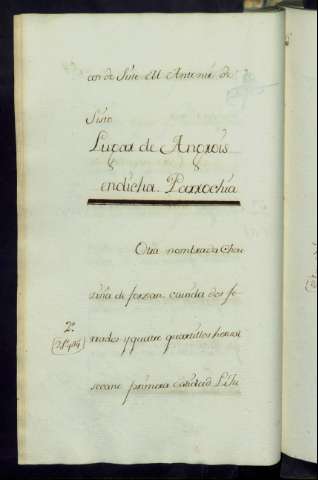 con de Sisto el Antonio de
Sisto
Lugar de Angrois
en dicha Parrochia
Otra nombrada Chou
siña de forzan, cauida dos fe
rrados y quatro quartillos hortal
2ª
secano primera calidad